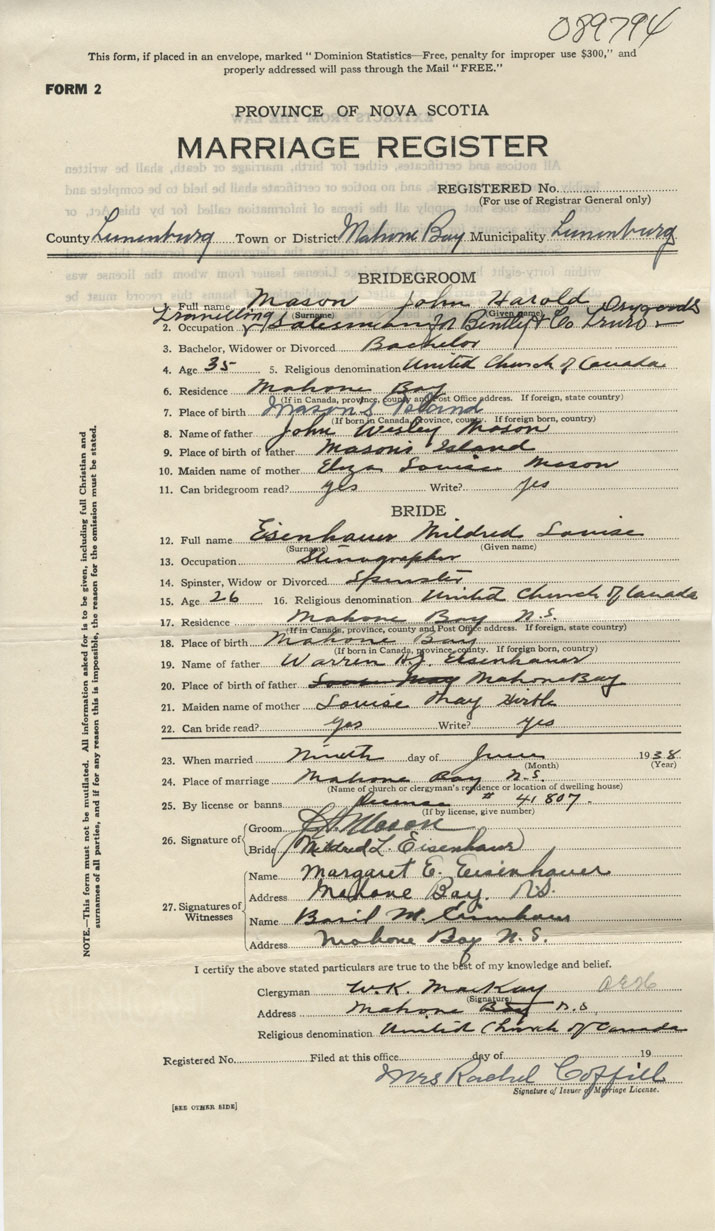 089794
This form, if placed in an envelope, marked "Dominion Statistics—Free, penalty for improper use $300," and
properly addressed will pass through the Mail "FREE."
FORM 2
PROVINCE OF NOVA SCOTIA
MARRIAGE REGISTER
REGISTERED No.
(For use of Registrar General only)
County Lunenburg Town or District Mahone Bay Municipality Lunenburg
BRIDEGROOM
1. Full name Mason John Harold
(Surname) (Given name)
Travelling Drygoods
2. Occupation Salesman for Bently & Co Truro
3. Bachelor, Widower or Divorced Bachelor
4. Age 35 5. Religious denomination United Church of Canada
6. Residence Mahone Bay
(If in Canada, province, county and Post Office address. If foreign, state country)
7. Place of birth Mason's Island
(If born in Canada, province, county. If foreign born, country)
8. Name of father John Wesley Mason
9. Place of birth of father Masons Island
10. Maiden name of mother Eliza Louise Mason
11. Can bridegroom read? yes Write? yes
BRIDE
12. Full name Eisenhauer Mildred Louise
(Surname) (Given name)
13. Occupation Stenographer
14. Spinster, Widow or Divorced Spinster
15. Age 26 16. Religious denomination United Church of Canada
17. Residence Mahone Bay N.S.
(If in Canada, province, county and Post Office address. If foreign, state country)
18. Place of birth Mahone Bay
(If born in Canada, province, county. If foreign born, country)
19. Name of father Warren H.J. Eisenhauer
20. Place of birth of father Mahone Bay
21. Maiden name of mother Louise May
22. Can bride read? yes Write? yes
23. When married Nineth day of June 1938
(Month) (Year)
24. Place of marriage Mahone Bay N.S.
(Name of church or clergyman's residence or location of dwelling house)
25. By license or banns license # 41807.
(If by license, give number)
26. Signature of
Groom J.H. Mason
Bride Mildred L. Eisenhauer
27. Signatures of Witnesses
Name Margaret E. Eisenhauer
Address Mahone Bay. N.S.
Name Basil M. Eisenhaur
Address Mahone Bay N.S.
I certify the above stated particulars are true to the best of my knowledge and belief.
Clergyman W.K. MacKay
(Signature)
Address Mahone Bay N.S.
Religious denomination United Church of Canada
Registered No. Filed at this office day of 19
Mrs Rachel Coffill
Signature of Issuer of Marriage License.
[SEE OTHER SIDE]
NOTE.—This form must not be mutilated. All information asked for is to be given, including full Christian and
surnames of all parties, and if for any reason this is impossible, the reason for the omission must be stated.